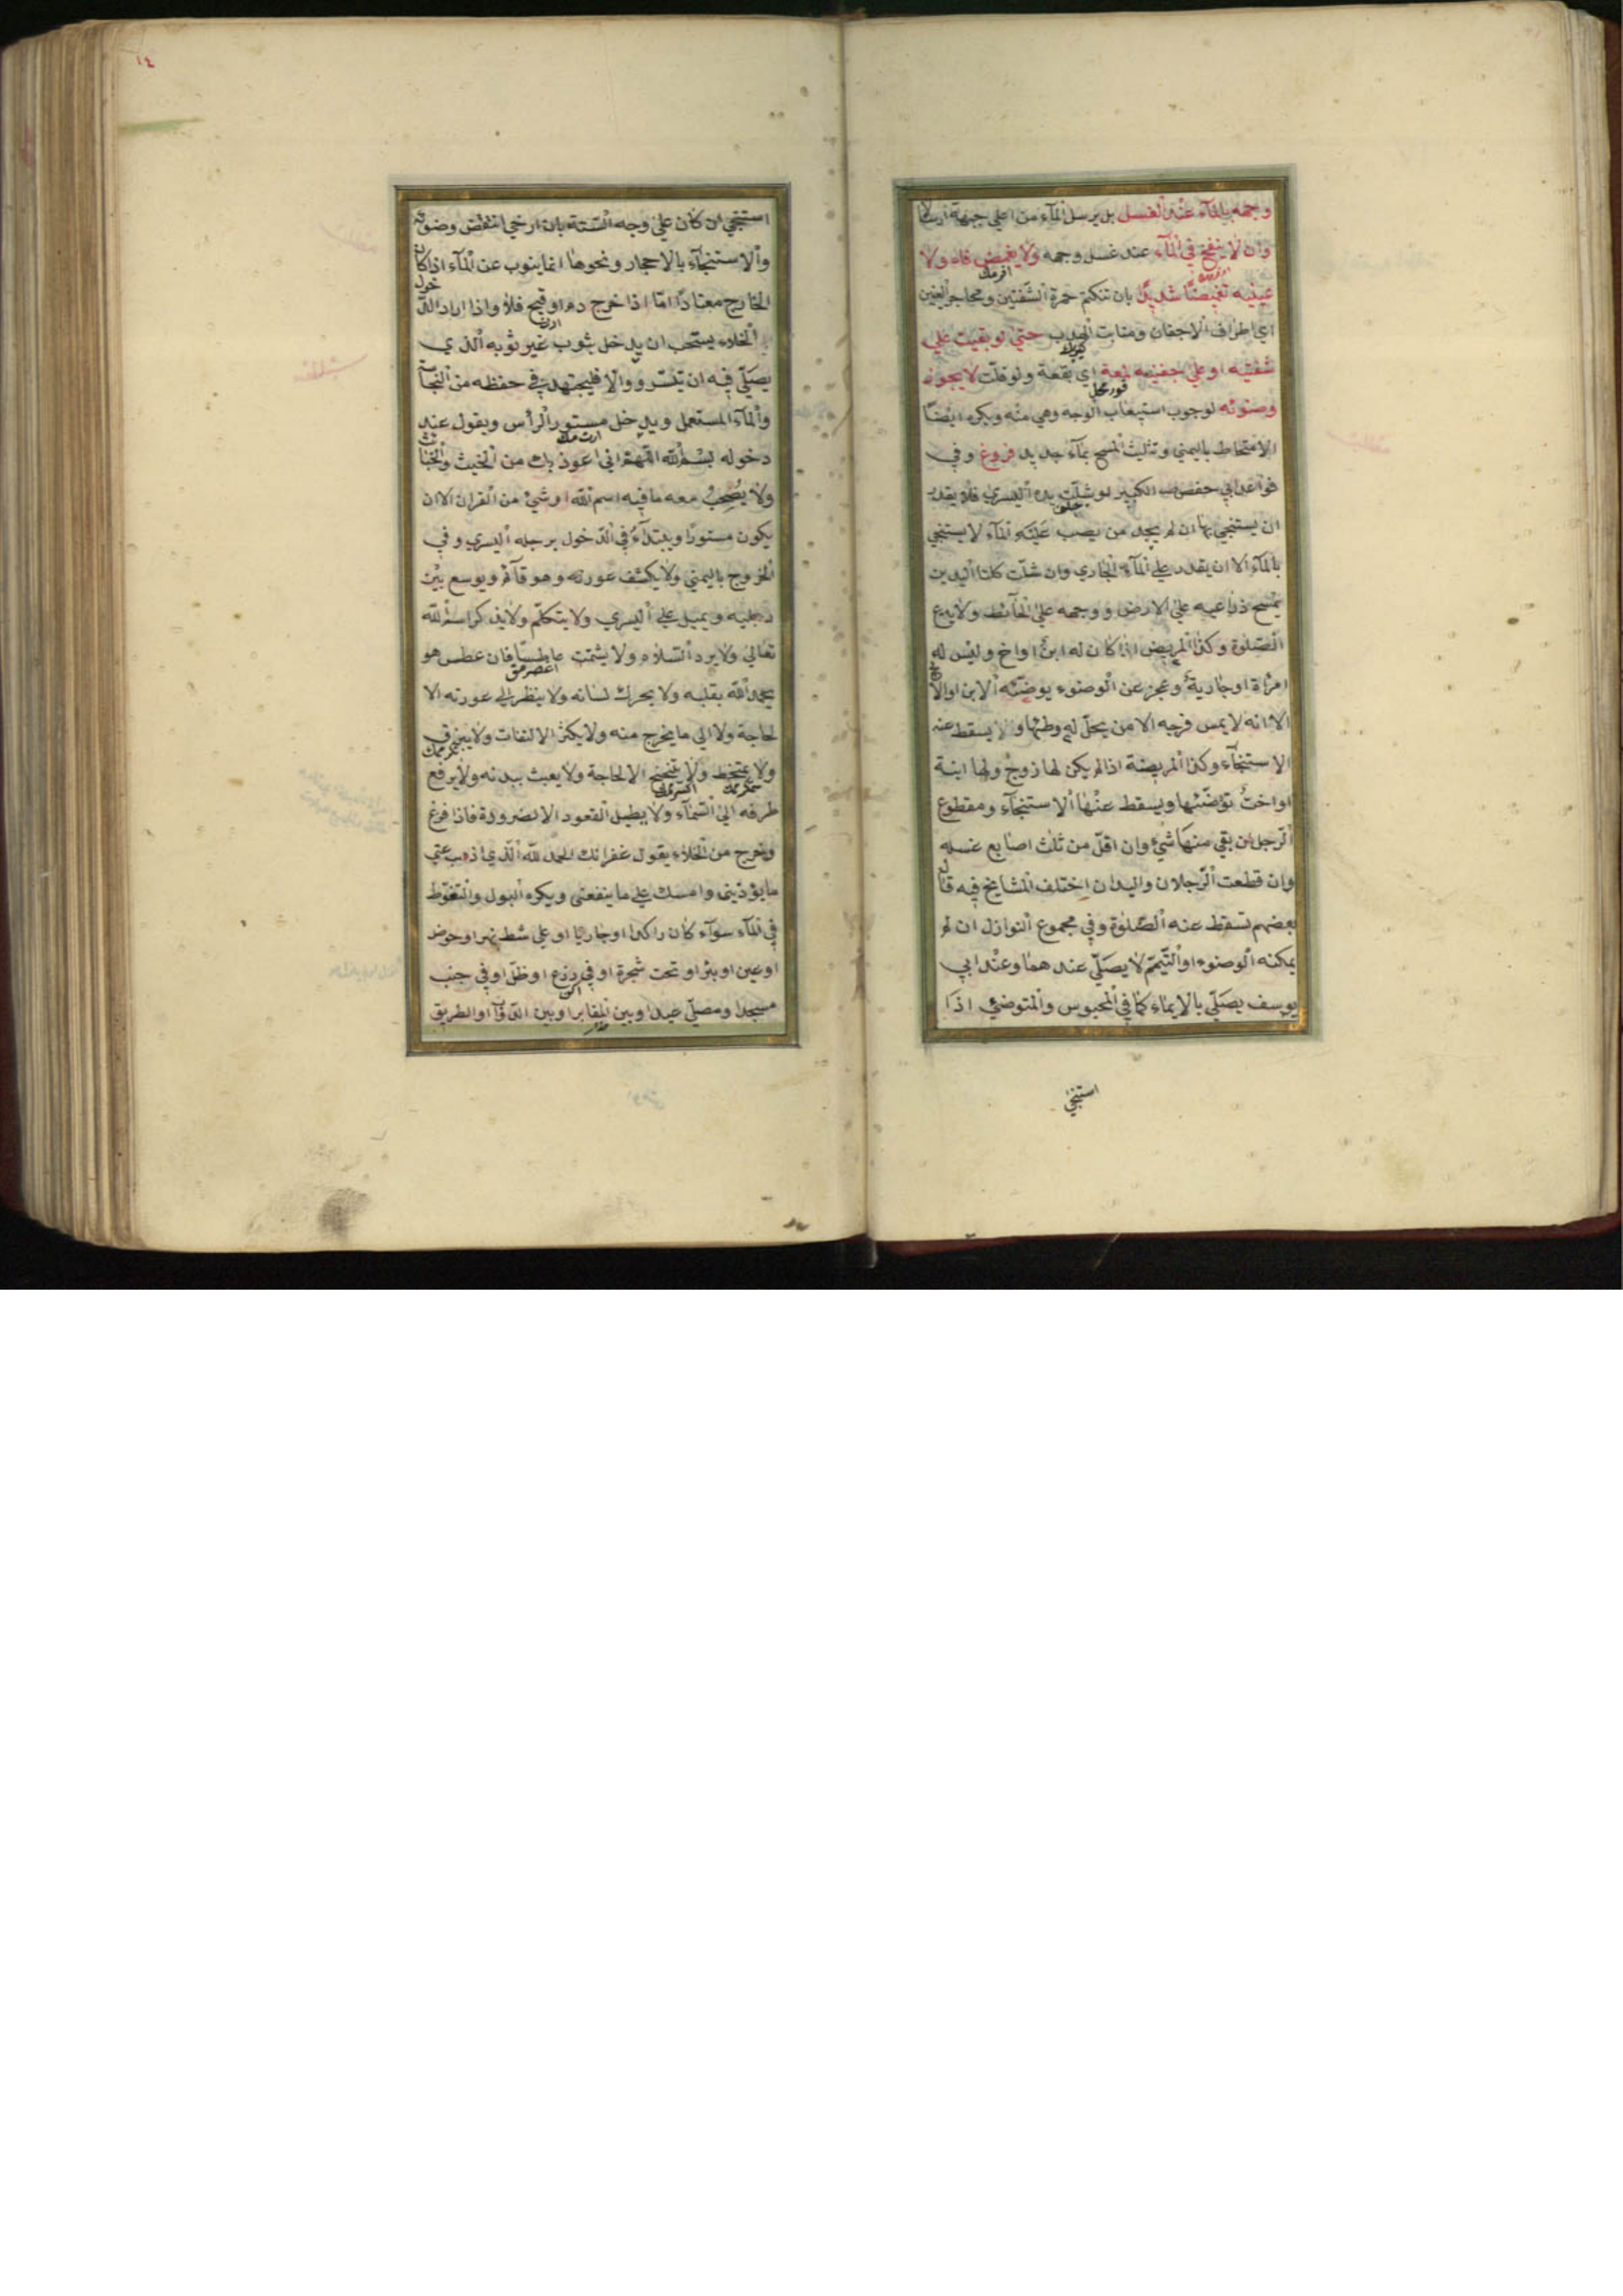 وجهه بالماء عند الغسل بل يرسل الماء من اعلي جبهته ارسالا
وان لا ينفخ في الماء عند غسل وجهه ولا يغمض فاه ولا
عينيه تغميضا شديدا بان تنكتم حمرة الشفتين ومحاجر العينين
اي اطراف الاجفان ومنابت الهدب حتي لو بقيت علي
شفتيه او علي جفنيه لمعة اي بقعة ولو قلت لا يجوز
وضوئه لوجوب استيعاب الوجه وهي منه ويكره ايضا
الامتخاط باليمني وتثليث المسح بماء جديد فروع وفي
فوائد ابي حفص الكبير لو شلت يده اليسري فلا يقدر
ان يستنجي بها ان لم يجد من يصب عليه الماء لا يستنجي
بالماء الا ان يقدر علي الماء الجاري وان شلت كلتا اليدين
يمسح ذراعيه علي الارض ووجهه علي الحائط ولا يدع
الصلوة وكذا المريض اذا كان له ابن او اخ وليس له
امراة او جارية وعجز عن الوضوء يوضئه الابن او الاخ
الا انه لا يمس فرجه الا من يحل له وطئها ولا يسقط عنه
الاستنجاء وكذا المريضة اذا لم يكن لها زوج ولها ابنة
او اخت توضئها ويسقط عنها الاستنجاء ومقطوع
الرجل ان بقي منها شيء وان اقل من ثلث اصابع غسله
وان قطعت الرجلان واليدان اختلف المشايخ فيه قال
بعضهم تسقط عنه الصلوة وفي مجموع النوازل ان لم
يمكنه الوضوء او التيمم لا يصلي عندهما وعند ابي
يوسف يصلي بالايماء كما في المحبوس والمتوضئ اذا
استنجي
١٤
استنجي ان كان علي وجه السنة بان ارخي انتقض وضوئه
والاستنجاء بالاحجار ونحوها انما ينوب عن الماء اذا كان
الخارج معتادا اما اذا خرج دم او قيح فلا واذا اراد الدخول
الخلاء يستحب ان يدخل بثوب غير ثوبه الذي
يصلي فيه ان تيسر والا فليجتهد في حفظه من النجاسة
والماء المستعمل ويدخل مستور الراس ويقول عند
دخوله بسم الله اللهم اني اعوذ بك من الخبث والخبائث
ولا يصحب معه ما فيه اسم الله او شيء من القران الا ان
يكون مستورا ويبتداء في الدخول برجله اليسري وفي
الخروج باليمني ولا يكشف عورته وهو قائم ويوسع بين
رجليه ويميل علي اليسري ولا يتكلم ولا يذكر اسم الله
تعالي ولا يرد السلام ولا يشمت عاطسا فان عطس هو
يحمد الله بقلبه ولا يحرك لسانه ولا ينظر الي عورته الا
لحاجة ولا الي ما يخرج منه ولا يكثر الالتفات ولا يبزق
ولا يمتخط ولا يتنحنح الا لحاجة ولا يعبث ببدنه ولا يرفع
طرفه الي السماء ولا يطيل القعود الا لضرورة فاذا فرغ
وخرج من الخلاء يقول غفرانك الحمد لله الذي اذهب عني
ما يؤذيني وامسك علي ما ينفعني ويكره البول والتغوط
في الماء سواء كان راكدا او جاريا او علي شط نهر او حوض
او عين او بئر او تحت شجرة او في زرع او ظل او في جنب
مسجد او مصلي عيد او بين المقابر او بين الدواب او الطريق